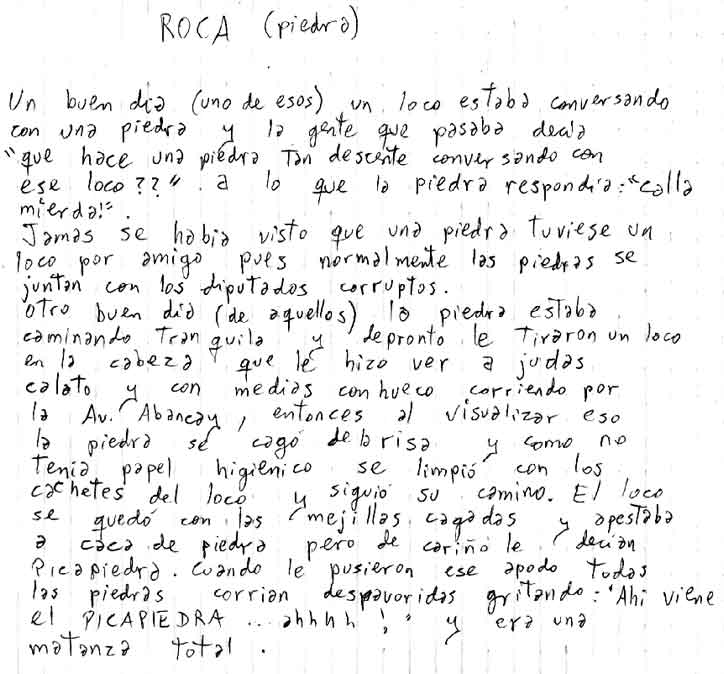 ROCA (piedra)
Un buen día (uno de esos) un loco estaba conversando
con una piedra y la gente que pasaba decía
"que hace una piedra tan descente conversando con
ese loco??" a lo que la piedra respondía: "calla
mierda!".
Jamas se había visto que una piedra tuviese un
loco por amigo pues normalmente las piedras se
juntan con los diputados corruptos.
Otro buen día (de aquellos) la piedra estaba
caminando tranquila y depronto le tiraron un loco
en la cabeza que le hizo ver a judas
calato y con medias con hueco corriendo por
la Av. Abancay, entonces al visualizar eso
la piedra se cagó de brisa y como no
tenía papel higiénico se limpió con los
cachetes del loco y siguió su camino. El loco
se quedó con las mejillas cagadas y apestaba
a caca de piedra pero de cariño le decían
Picapiedra. Cuando le pusieron ese apodo todas
las piedras corrian despavoridas gritando: "Ahi viene
el PICAPIEDRA ... ahhhh!," y era una
matanza total.